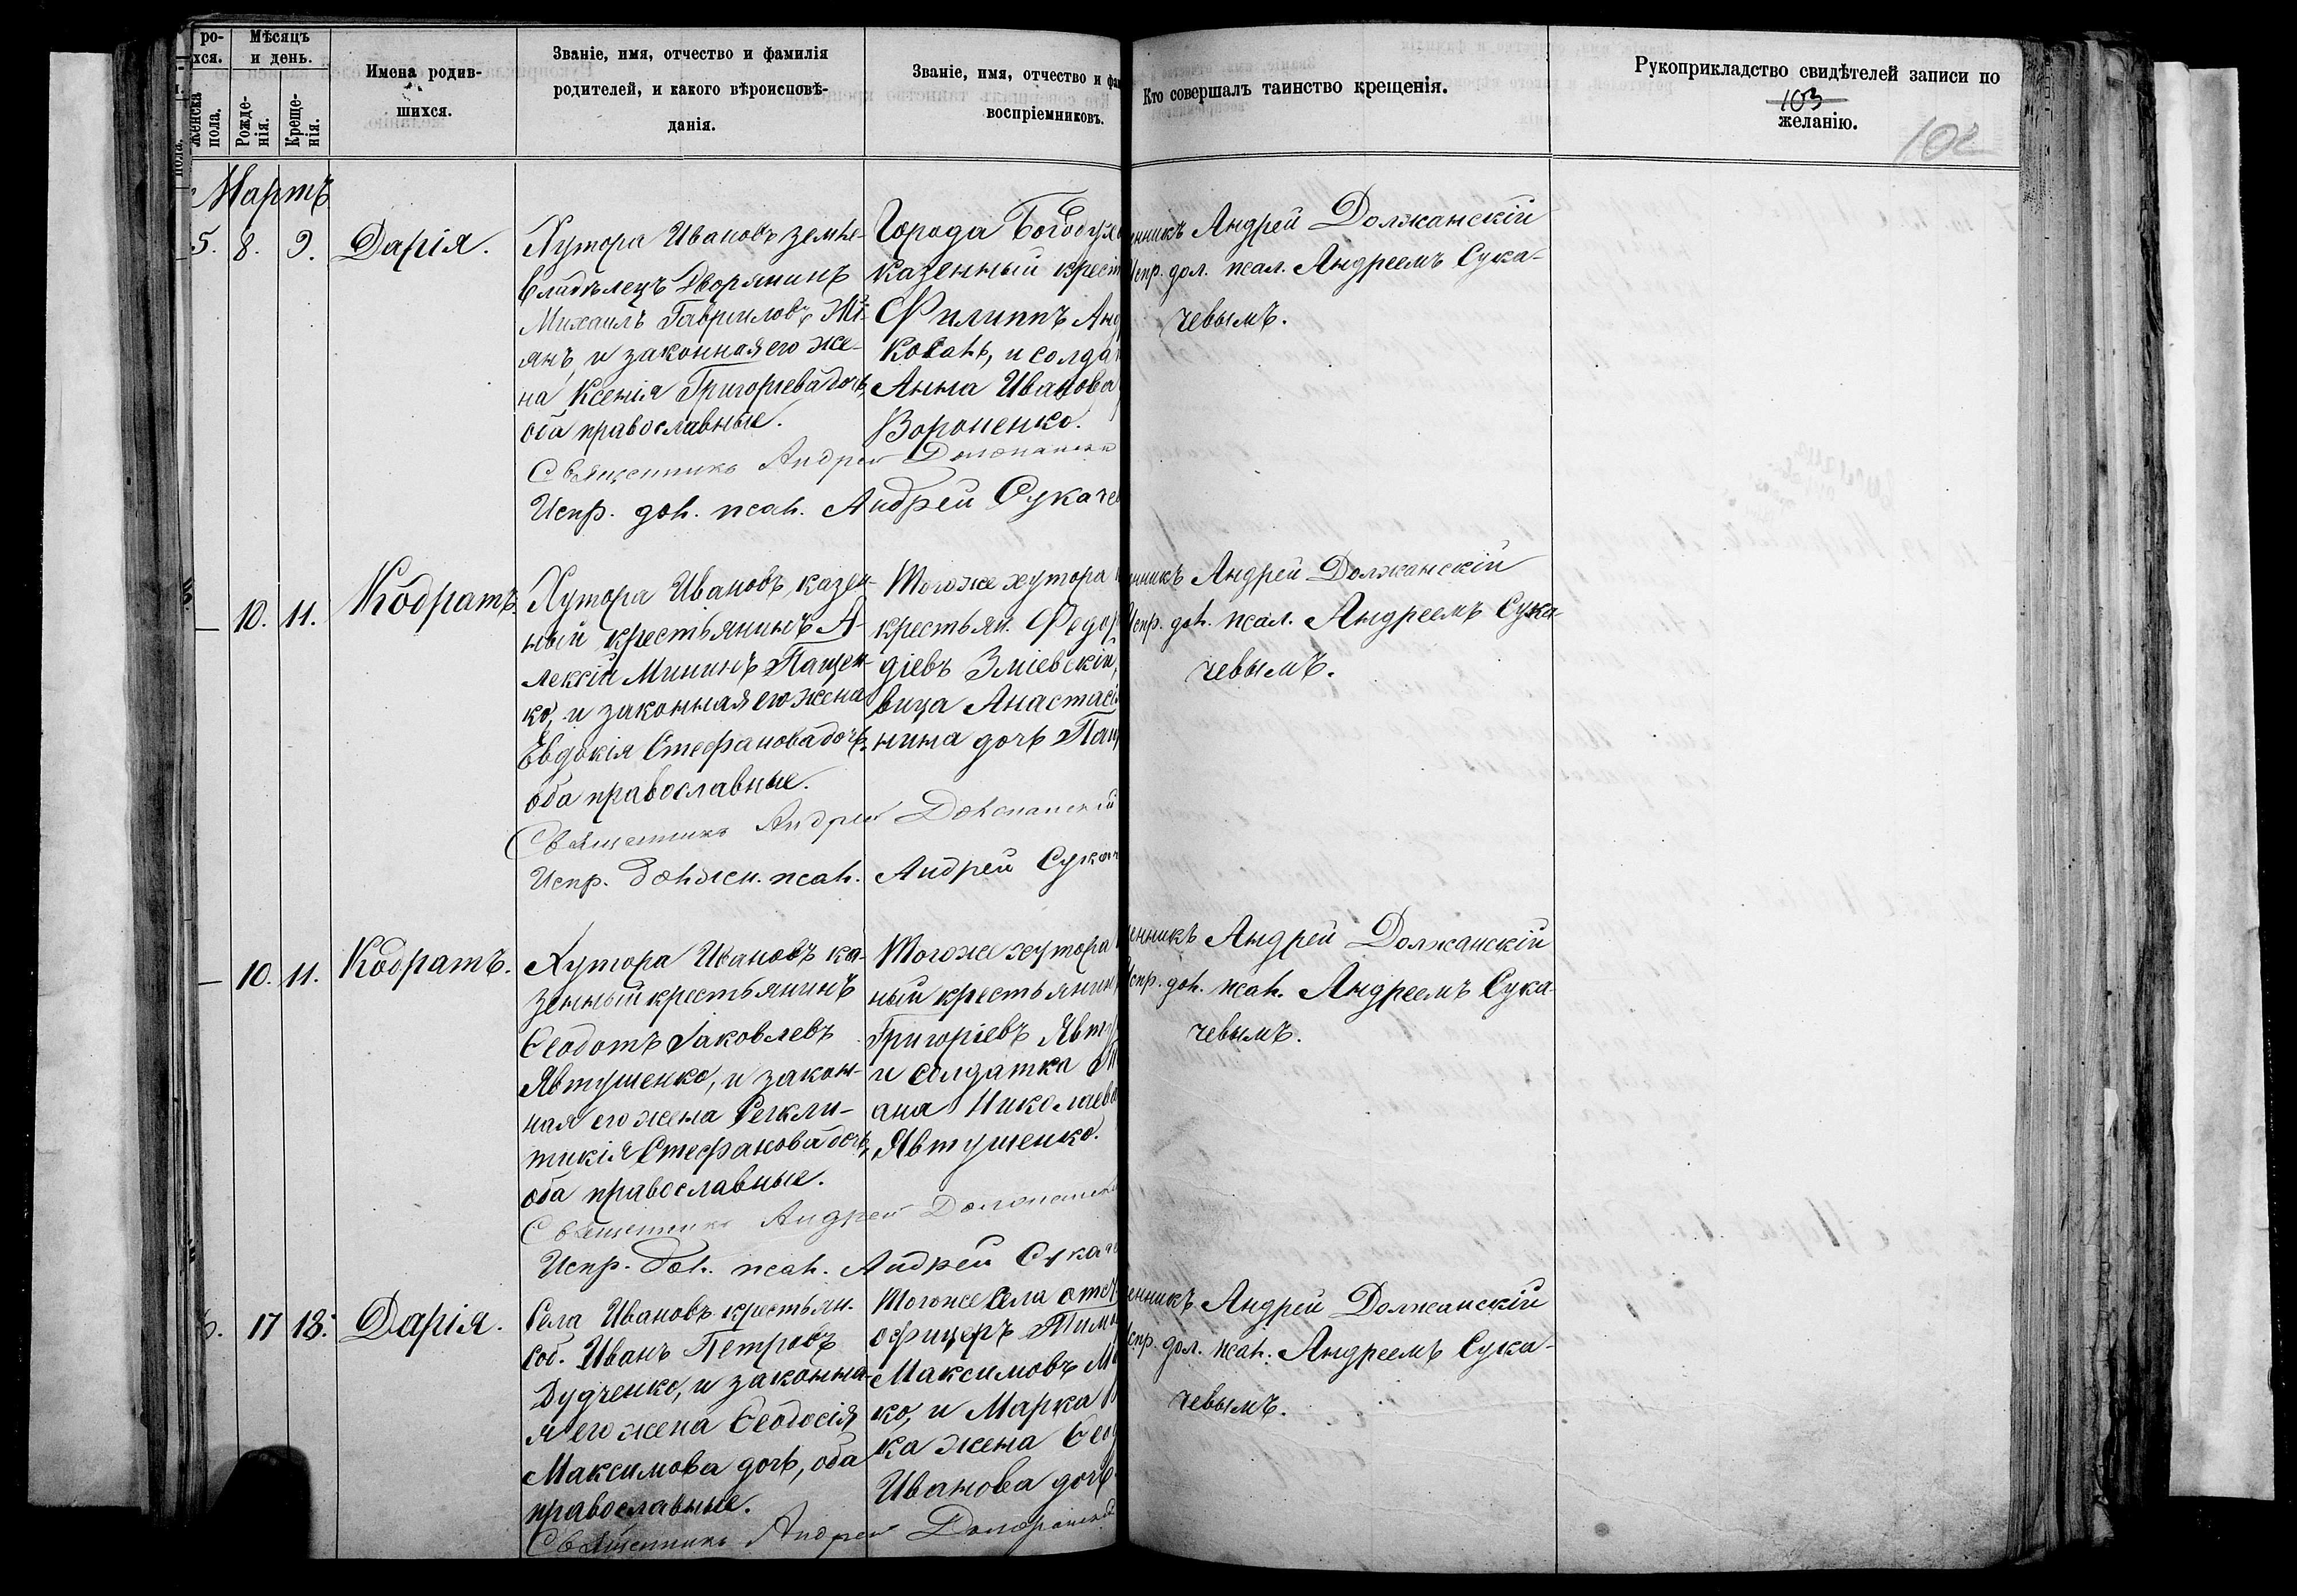 ро-
хся.
Мѣсяцъ
и день.
Женска
пола.
Рожде-
нія.
Креще-
нія.
Имена родив-
шихся.
Званіе, имя, отчество и фамилія
родителей, и какого вѣроисповѣ-
данія.
Званіе, имя, отчество и фам
воспріемниковъ.
Кто совершалъ таинство крещенія.
Рукоприкладство свидѣтелей записи по
желанію.
103
102
Мартъ
5. 8. 9. Дарія.
Хутора Ивановъ земле-
владѣлецъ Дворянинъ
Михаилъ Гавриловъ Жі-
янъ, и законная его же-
на Ксенія Григоріева дочь,
оба православные.
Священникъ Андрей Должанскі
Испр. дол. псал. Андрей Сукаче
Города Богодух
казенный крест
Филиппъ Анд
Коваль, и солдат
Анна Иванова
Вороненко.
енникъ Андрей Должанскій
Испр. дол. псал. Андреемъ Сука-
чевымъ.
10. 11. Кодратъ
Хутора Ивановъ казен-
ный крестьянинъ А-
лексій Мининъ Пащен-
ко, и законная его жена
Евдокія Стефанова дочь,
оба православные.
Священникъ Андрей Должанскій
Испр. должн. псал. Андрей Сукач
Тогоже хутора
крестьян. Федор
діевъ Зміевскій,
вица Анастасі
нина дочь Пащ
нникъ Андрей Должанскій
Испр. дол. псал. Андреемъ Сука-
чевымъ.
10. 11. Кодратъ.
Хутора Ивановъ ка-
зенный крестьянинъ
Ѳеодотъ Іаковлевъ
Явтушенко, и закон-
ная его жена
Стефанова дочь,
оба православные.
Священникъ Андрей Должанск
Испр. дол. псал. Андрей Сукаче
Тогоже хутора
ный крестьянин
Григоріевъ Явту
и солдатка
ана Николаева
Явтушенко.
енникъ Андрей Должанскій
Испр. дол. псал. Андреемъ Сука-
чевымъ.
6. 17 18. Дарія.
Села Ивановъ крестьян.
соб. Иванъ Петровъ
Дудченко, и законна-
я его жена Ѳеодосія
Максимова дочь, оба
православные.
Священникъ Андрей Должанскій
Тогоже села
офицеръ Тимо
Максимовъ
ко, и Марка
ка жена Ѳеод
Иванова дочь
енникъ Андрей Должанскій
Испр. дол. псал. Андреемъ Сука-
чевымъ.